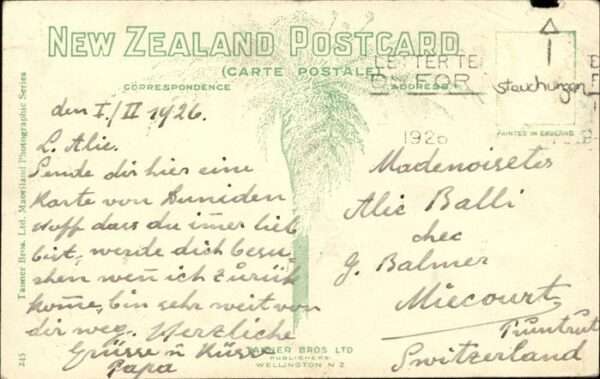 NEW ZEALAND POSTCARD
(CARTE POSTALE)
CORRESPONDENCE
ADDRESS
LETTER TE
FOR
steuchungen
1926
PRINTED IN ENGLAND
Tanner Bros. Ltd. Maoriland Photographic Series
245
den I./II 1926.
L. Alic.
Sende dir hier eine
Karte von Duniden
hoff dass du imer lieb
bist, werde dich besu
chen wen ich zurük
kome, bin sehr weit von
dir weg. Herzliche
Grüsse u Küsse
Papa
Madenoiseles
Alic Balli
chec
G. Balmer
Miecourt
Pruntrut
Switzerland
TANNER BROS LTD
PUBLISHERS
WELLINGTON N.Z.